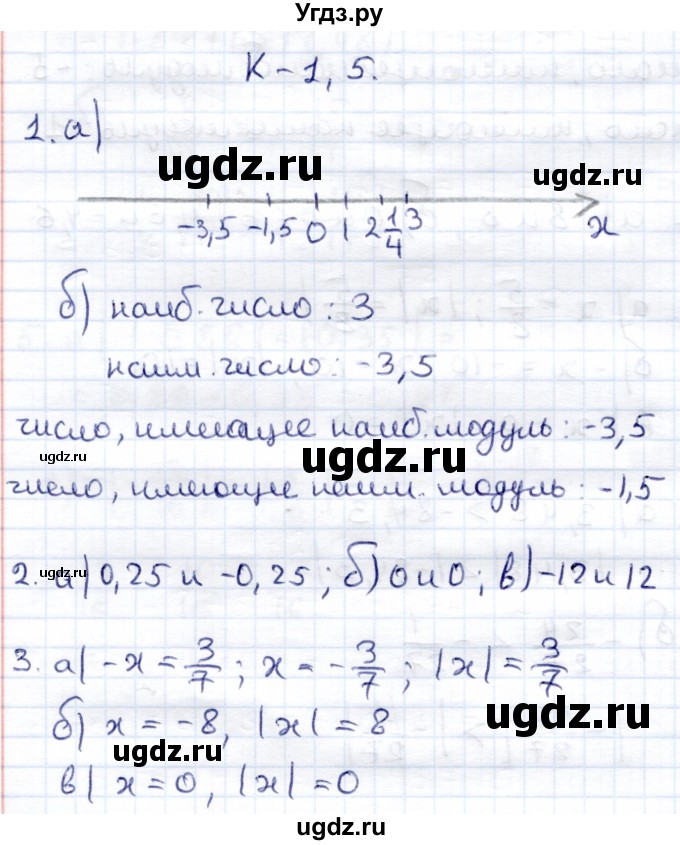 Угдз.ру
К-1, 5.
1. а)
ugdz.ru
ugdz.ru
-3,5 -1,5 0 1 2 1/4 3 x
б) наиб. число : 3
наим. число : -3,5
число, имеющее наиб. модуль : -3,5
ugdz.ru
ugdz.ru
число, имеющее наим. модуль : -1,5
2. а) 0,25 и -0,25 ; б) 0 и 0 ; в) -12 и 12
ugdz.ru
3. а) -x = 3/7 ; x = -3/7 ; |x| = 3/7
б) x = -8, |x| = 8
ugdz.ru
ugdz.ru
в) x = 0, |x| = 0
ugdz.ru